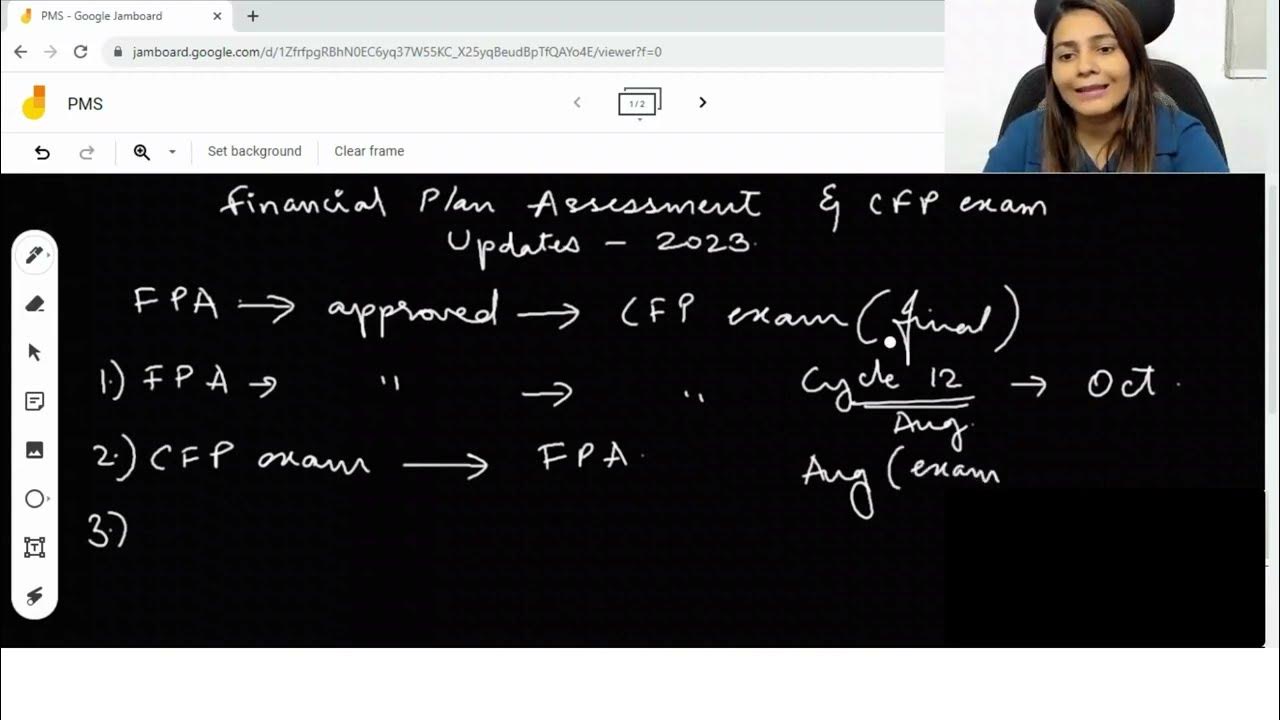 PMS - Google Jamboard
jamboard.google.com/d/1ZfrfpgRBhN0EC6yq37W55KC_X25yqBeudBpTfQAYo4E/viewer?f=0
PMS
1/2
Set background
Clear frame
Financial Plan Assessment & CFP exam
Updates - 2023.
FPA → approved → CFP exam (final)
1.) FPA → " → " Cycle 12 → Oct.
Aug.
2.) CFP exam → FPA. Aug (exam
3.)